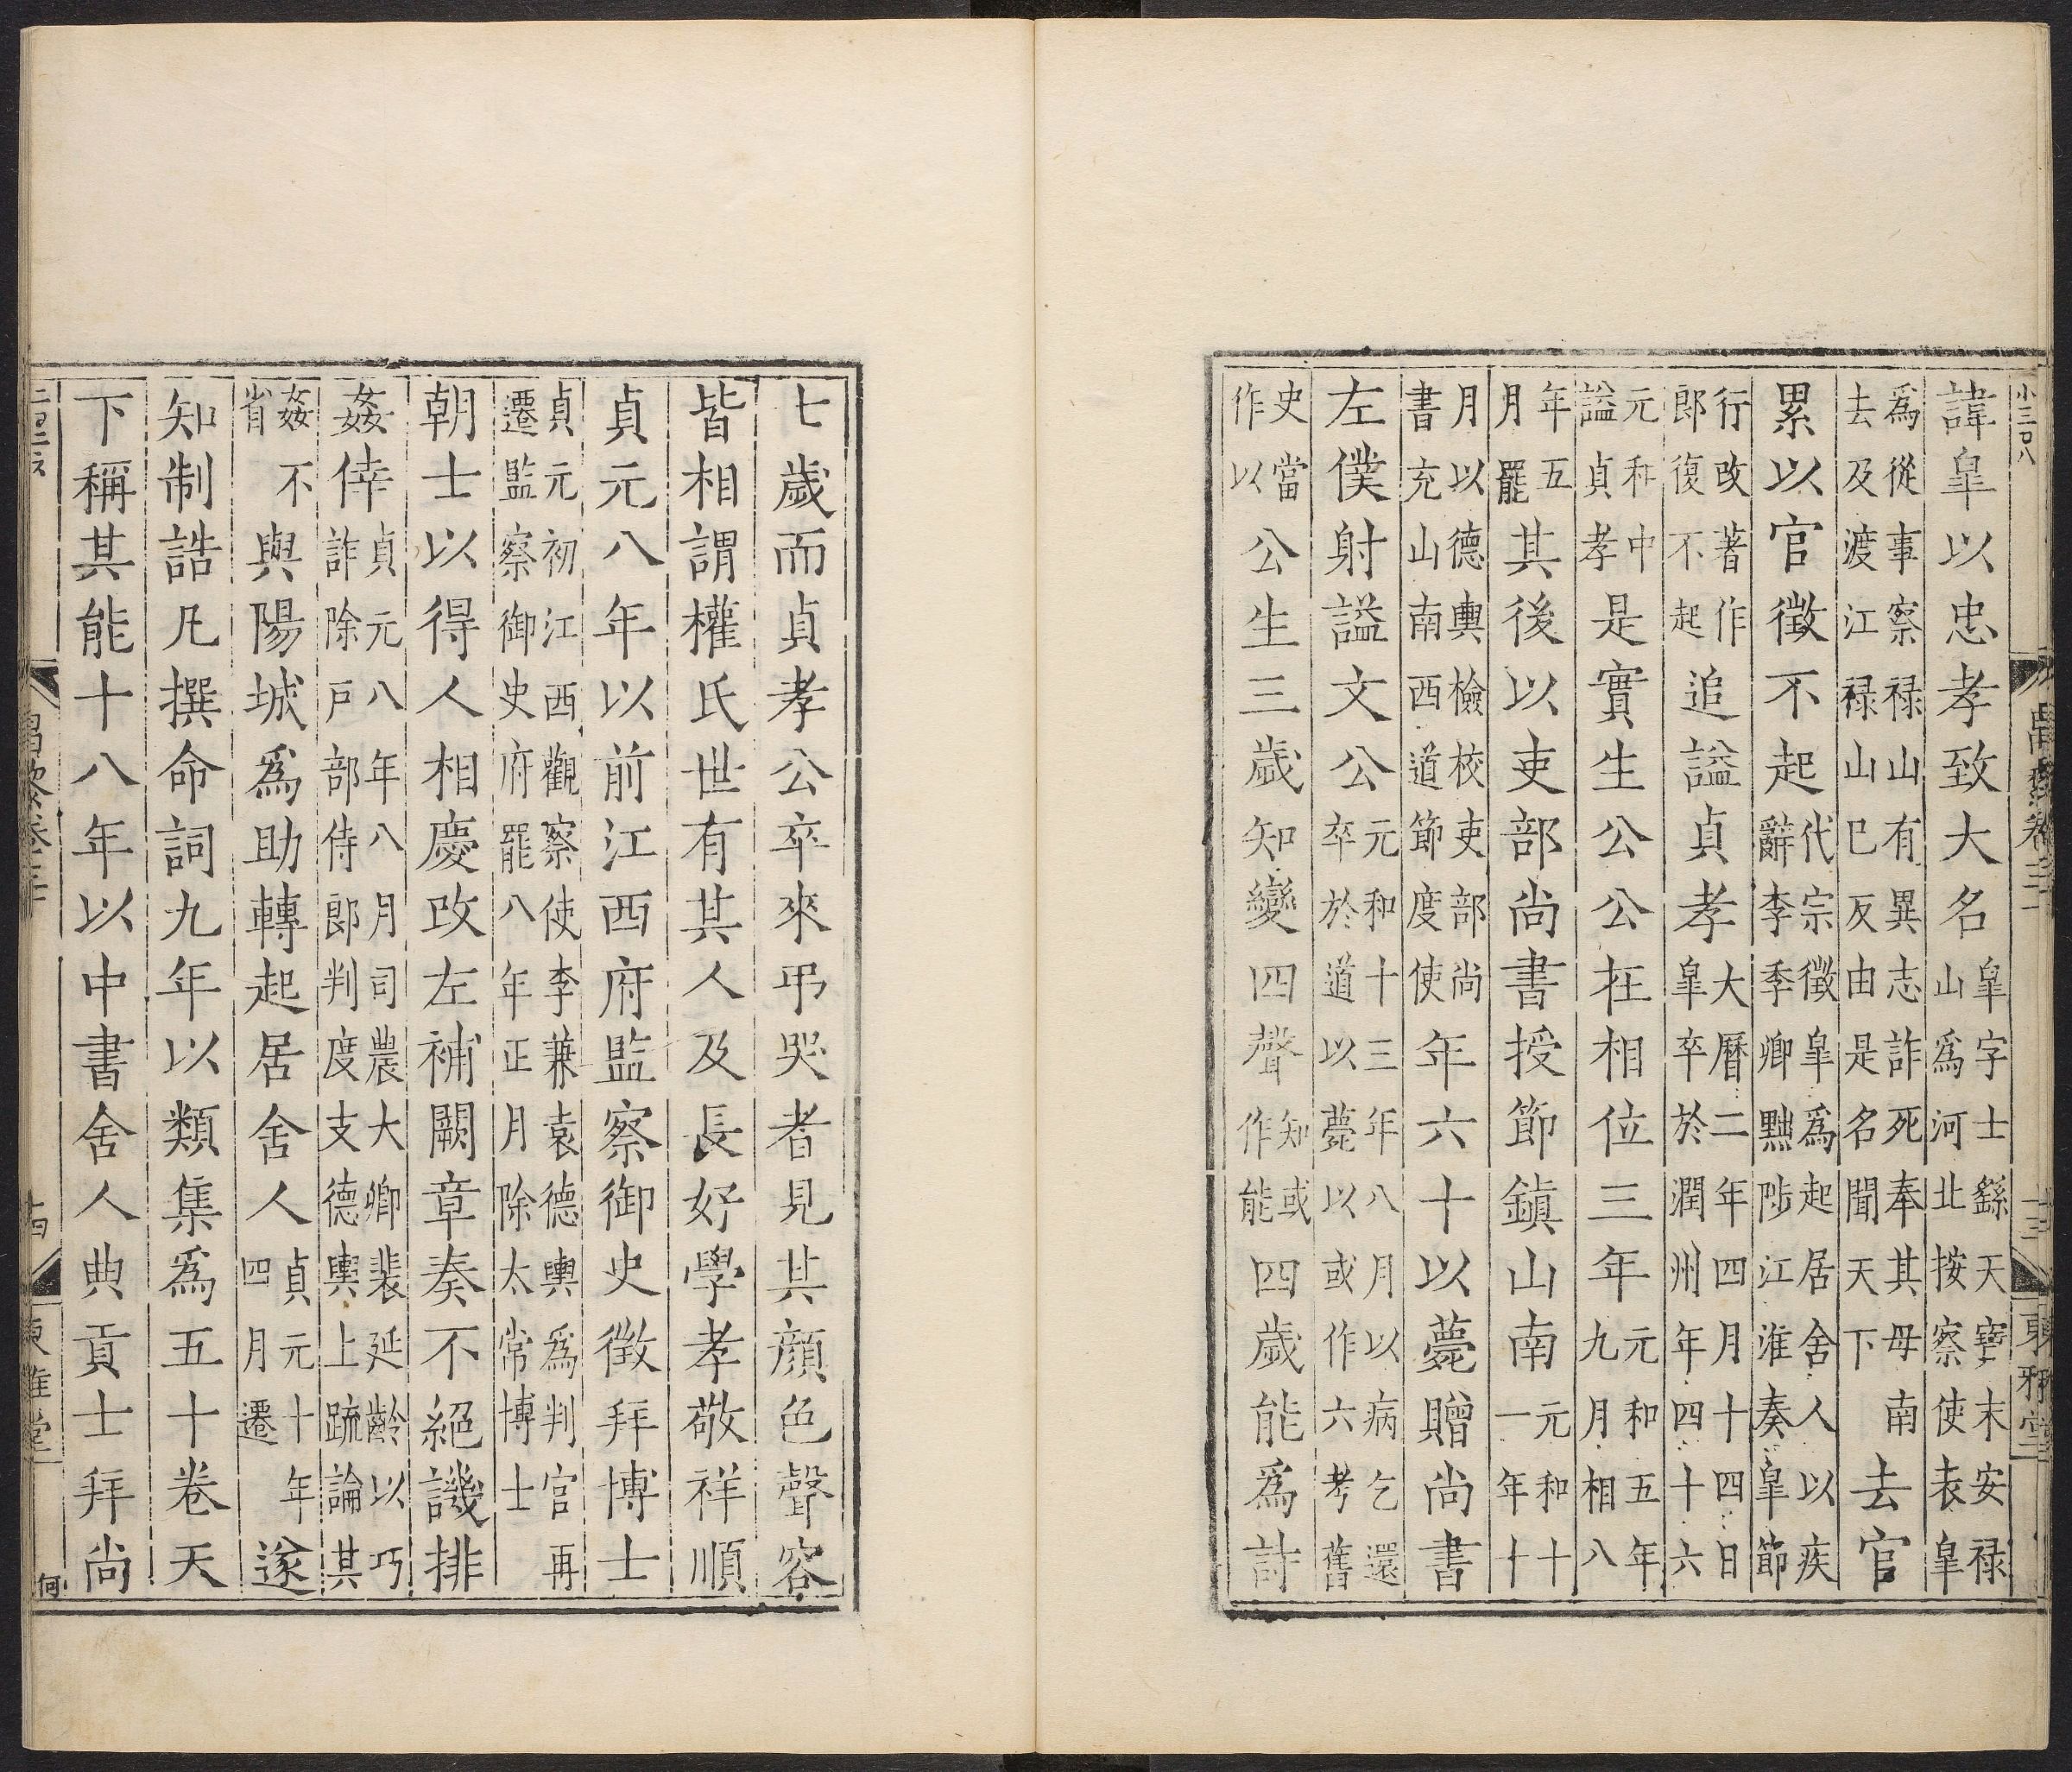 諱臯以忠孝致大名臯字士繇天寶末安祿山爲河北按察使表臯
爲從事察祿山有異志詐死奉其母南去及渡江祿山已反由是名聞天下去官
累以官徵不起代宗徵臯爲起居舍人以疾辭李季卿黜陟江淮奏臯節
行改著作郎復不起追謚貞孝大曆二年四月十四日臯卒於潤州年四十六
元和中謚貞孝是實生公公在相位三年元和五年九月相八
年五月罷其後以吏部尚書授節鎮山南元和十一年十
月以德輿檢校吏部尚書充山南西道節度使年六十以薨贈尚書
左僕射謚文公元和十三年八月以病乞還卒於道以薨以或作六考舊
史當作以公生三歲知變四聲知或作能四歲能爲詩
七歲而貞孝公卒來弔哭者見其顏色聲容
皆相謂權氏世有其人及長好學孝敬祥順
貞元八年以前江西府監察御史徵拜博士
貞元初江西觀察使李兼表德輿爲判官再遷監察御史府罷八年正月除太常博士
朝士以得人相慶改左補闕章奏不絕譏排
姦倖貞元八年八月司農大卿裴延齡以巧詐除戶部侍郎判度支德輿上疏論其
姦不省與陽城爲助轉起居舍人貞元十年四月遷遂
知制誥凡撰命詞九年以類集爲五十卷天
下稱其能十八年以中書舍人典貢士拜尚
昌黎卷三十
十四
東雅堂
何